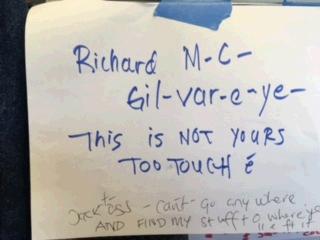 Richard M-C-
Gil-var-e-ye-
This is NOT YOURS
TOO TOUCH É
Jack oss - can't - go any where
AND FIND MY stufft o where yo